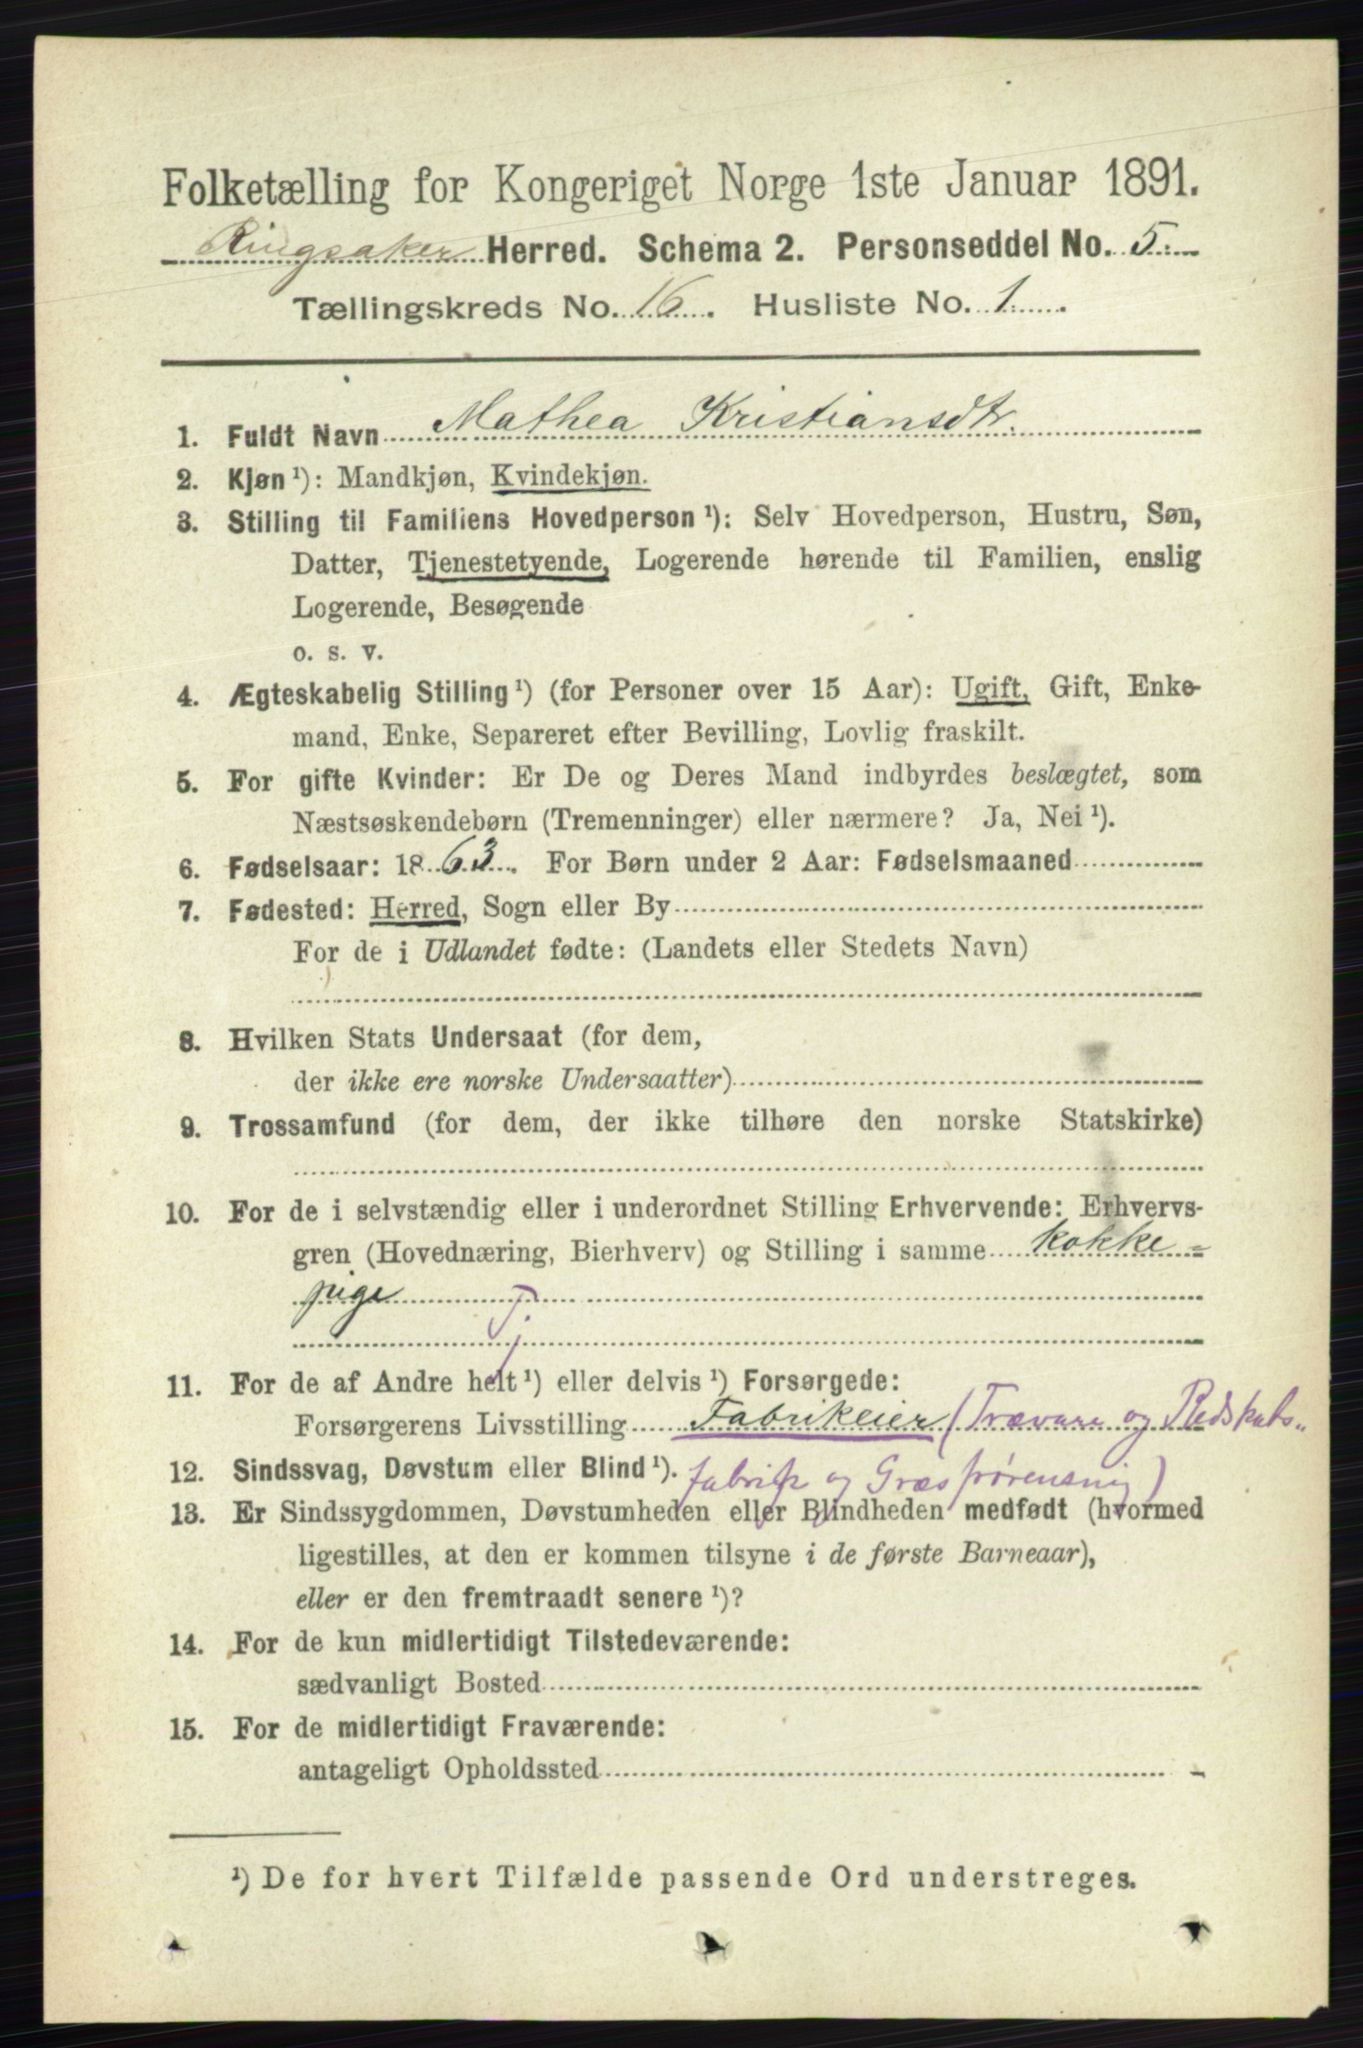 Folketælling for Kongeriget Norge 1ste Januar 1891.
Ringsaker Herred. Schema 2. Personseddel No. 5.
Tællingskreds No. 16. Husliste No. 1.
1. Fuldt Navn Mathea Kristiansdtr.
2. Kjøn ¹): Mandkjøn, Kvindekjøn.
3. Stilling til Familiens Hovedperson ¹): Selv Hovedperson, Hustru, Søn,
Datter, Tjenestetyende, Logerende hørende til Familien, enslig
Logerende, Besøgende
o. s. v.
4. Ægteskabelig Stilling ¹) (for Personer over 15 Aar): Ugift, Gift, Enke-
mand, Enke, Separeret efter Bevilling, Lovlig fraskilt.
5. For gifte Kvinder: Er De og Deres Mand indbyrdes beslægtet, som
Næstsøskendebørn (Tremenninger) eller nærmere? Ja, Nei ¹).
6. Fødselsaar: 1863. For Børn under 2 Aar: Fødselsmaaned
7. Fødested: Herred, Sogn eller By
For de i Udlandet fødte: (Landets eller Stedets Navn)
8. Hvilken Stats Undersaat (for dem,
der ikke ere norske Undersaatter)
9. Trossamfund (for dem, der ikke tilhøre den norske Statskirke)
10. For de i selvstændig eller i underordnet Stilling Erhvervende: Erhvervs-
gren (Hovednæring, Bierhverv) og Stilling i samme kokke-
pige T.
11. For de af Andre helt ¹) eller delvis ¹) Forsørgede:
Forsørgerens Livsstilling Fabrikeier (Trævare og Redskabs-
12. Sindssvag, Døvstum eller Blind ¹). fabrik og Græsfrørensnig)
13. Er Sindssygdommen, Døvstumheden eller Blindheden medfødt (hvormed
ligestilles, at den er kommen tilsyne i de første Barneaar),
eller er den fremtraadt senere ¹)?
14. For de kun midlertidigt Tilstedeværende:
sædvanligt Bosted
15. For de midlertidigt Fraværende:
antageligt Opholdssted
¹) De for hvert Tilfælde passende Ord understreges.